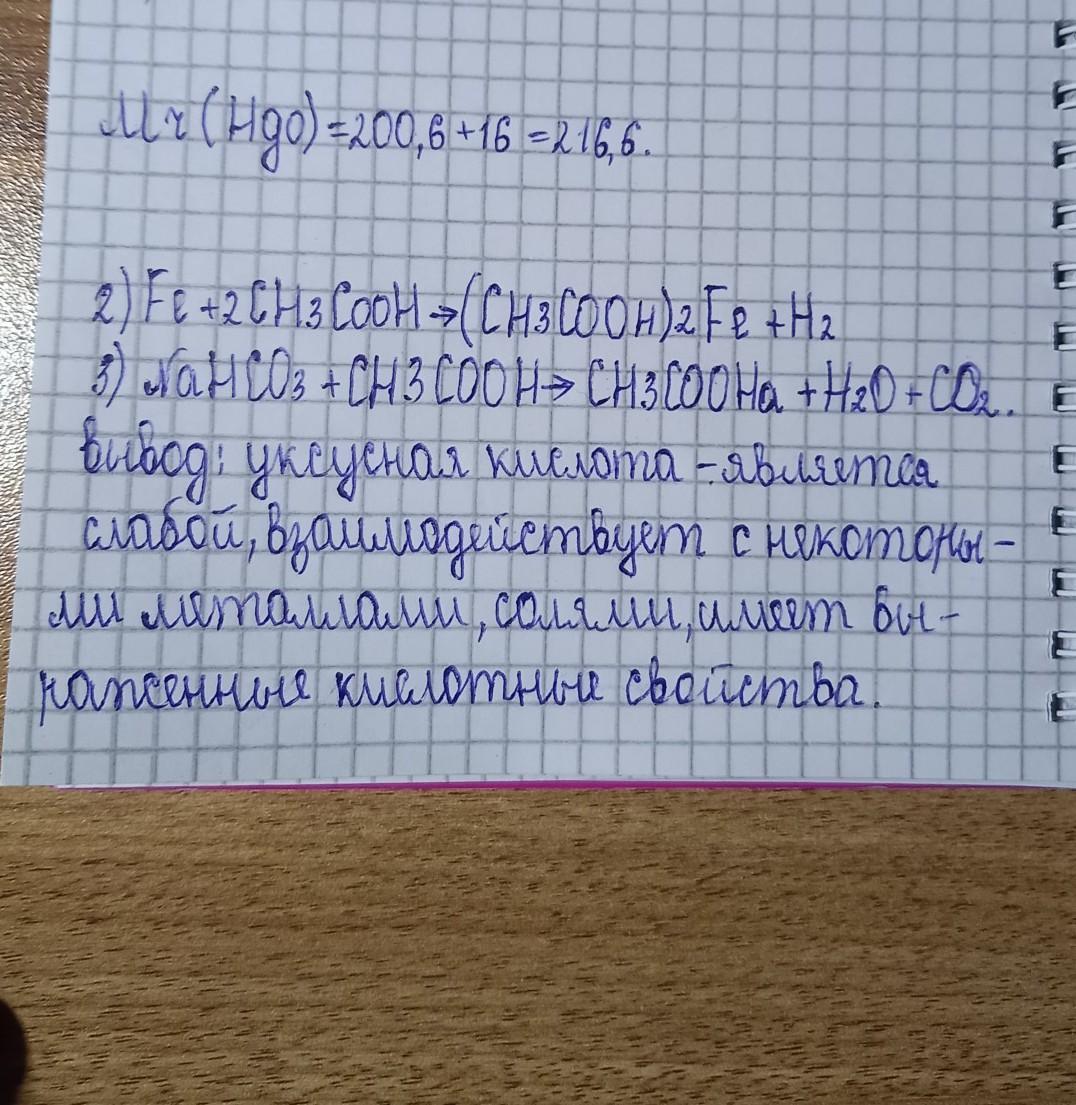 Mr(HgO)=200,6+16=216,6.
2) Fe+2CH3COOH→(CH3COOH)2Fe+H2
3) NaHCO3+CH3COOH→CH3COOHa+H2O+CO2.
Вывод: уксусная кислота - является
слабой, взаимодействует с некоторы-
ми металлами, солями, имеет вы-
раженные кислотные свойства.